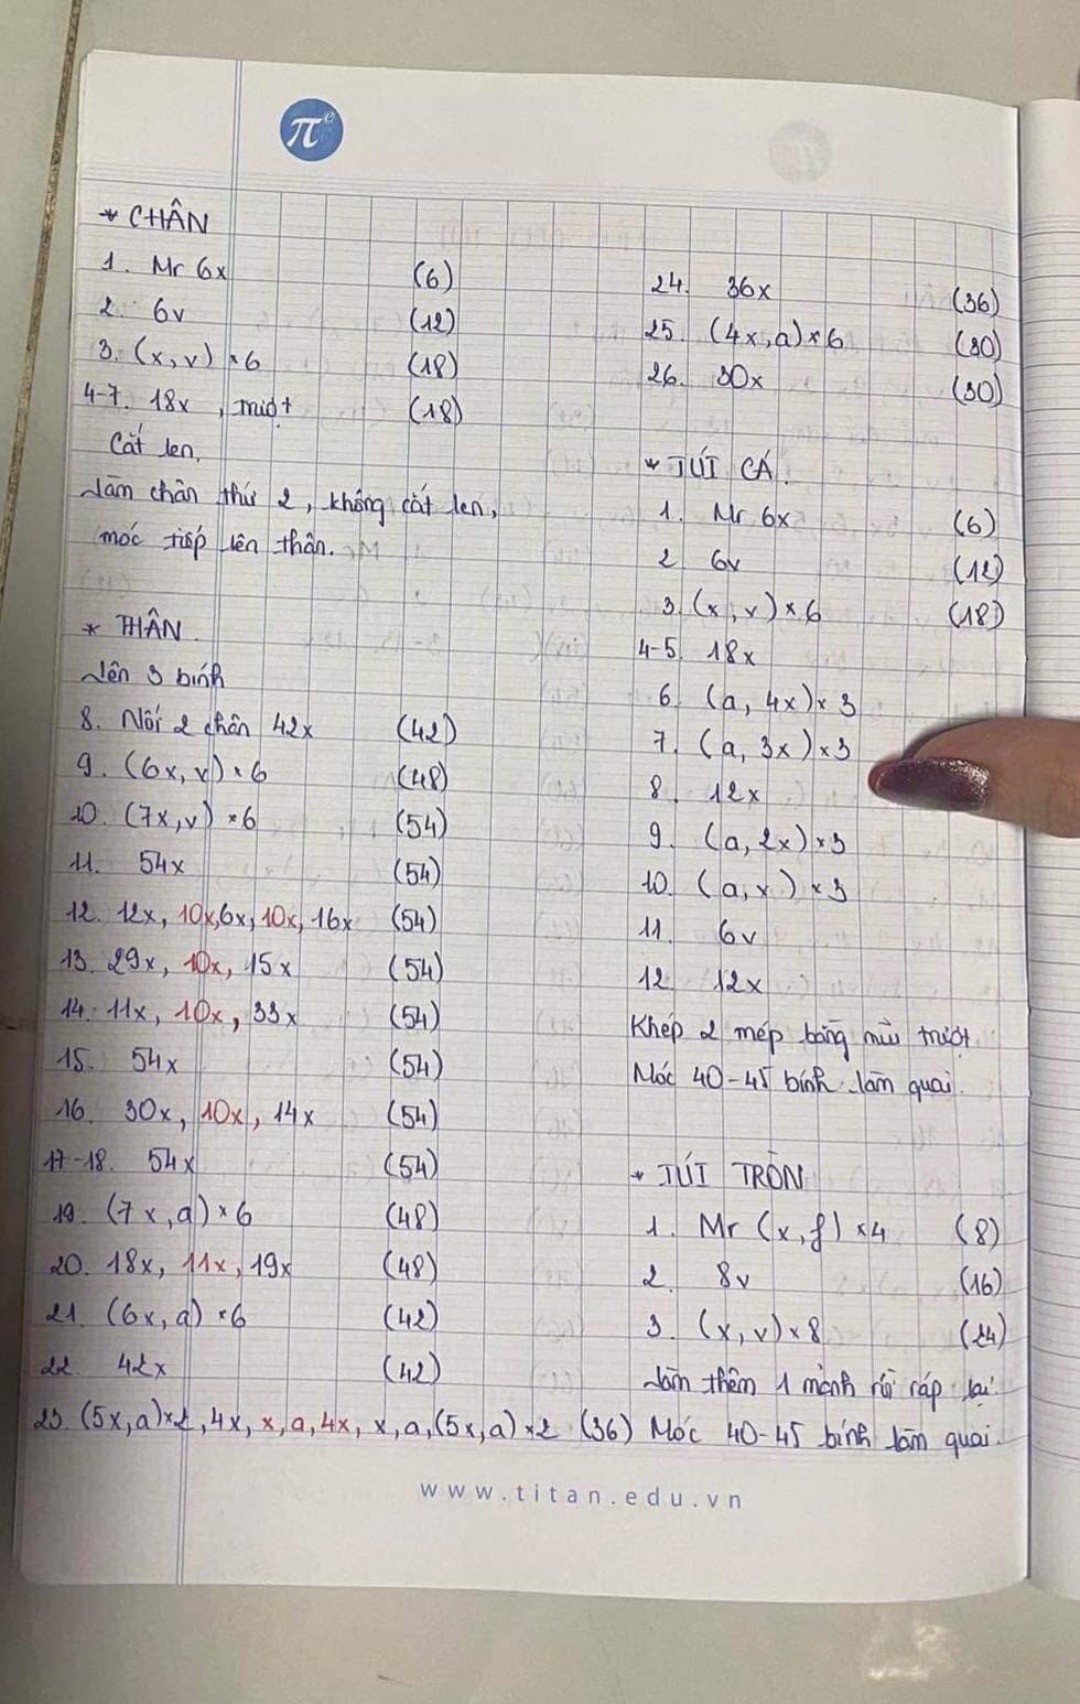 πe
* CHÂN
1. Mr 6x (6)
2. 6v (12)
3. (x, v) × 6 (18)
4-7. 18x, mượt (18)
Cắt len.
Làm chân thứ 2, không cắt len,
móc tiếp lên thân.
* THÂN.
Lên 3 bính
8. Nối 2 chân 42x (42)
9. (6x, v) × 6 (48)
10. (7x, v) × 6 (54)
11. 54x (54)
12. 12x, 10x, 6x, 10x, 16x (54)
13. 29x, 10x, 15x (54)
14. 11x, 10x, 33x (54)
15. 54x (54)
16. 30x, 10x, 14x (54)
17-18. 54x (54)
19. (7x, a) × 6 (48)
20. 18x, 11x, 19x (48)
21. (6x, a) × 6 (42)
22. 42x (42)
23. (5x, a) × 2, 4x, x, a, 4x, x, a, (5x, a) × 2 (36)
24. 36x (36)
25. (4x, a) × 6 (30)
26. 30x (30)
* TÚI CÁ.
1. Mr 6x (6)
2 6v (12)
3. (x, v) × 6 (18)
4-5. 18x
6. (a, 4x) × 3
7. (a, 3x) × 3
8. 12x
9. (a, 2x) × 3
10. (a, x) × 3
11. 6v
12 12x
Khép 2 mép bằng mũi trượt.
Móc 40-45 bính làm quai.
* TÚI TRÒN
1. Mr (x, f) × 4 (8)
2. 8v (16)
3. (x, v) × 8 (24)
Làm thêm 1 mảnh rồi ráp lại.
Móc 40-45 bính làm quai.
www.titan.edu.vn